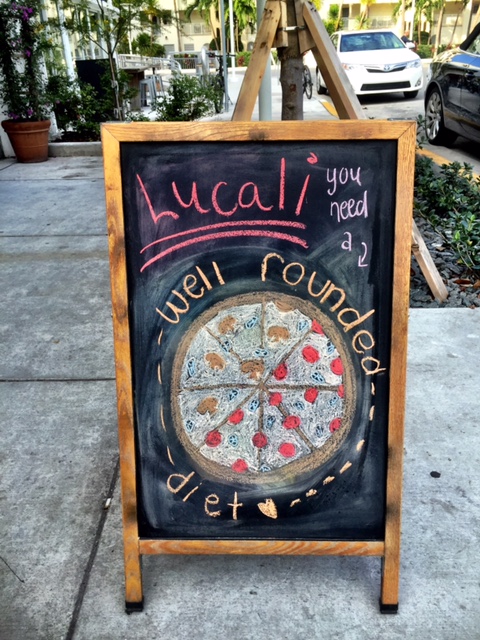 Lucali
you
need
a
well rounded
diet